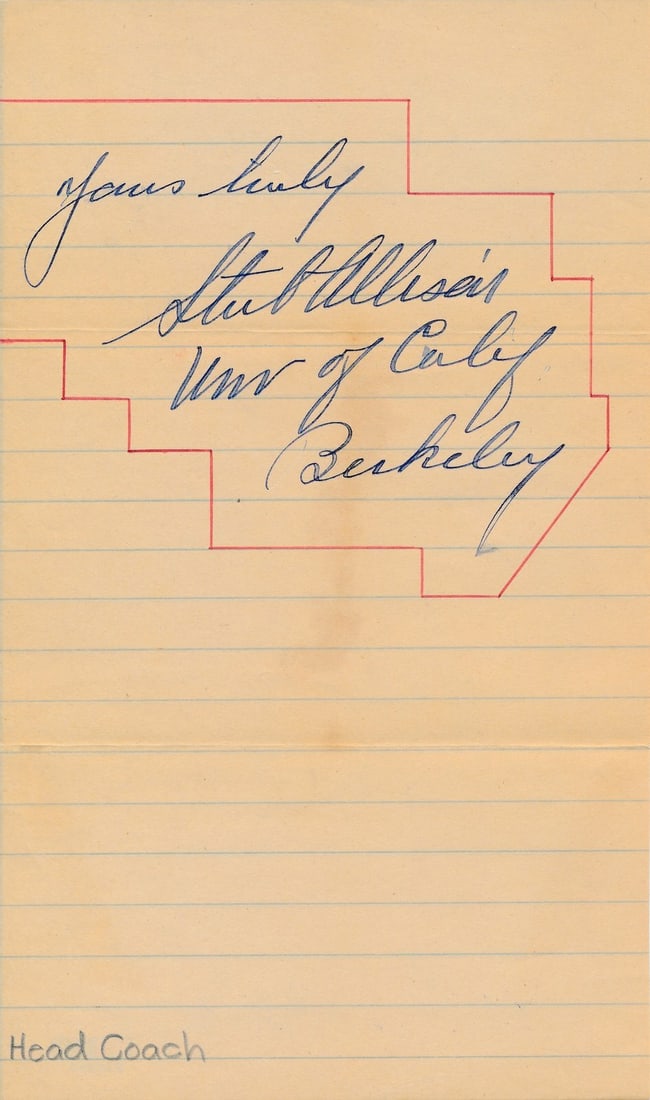 Yours truly
Stub Allison
Univ of Calif
Berkeley
Head Coach